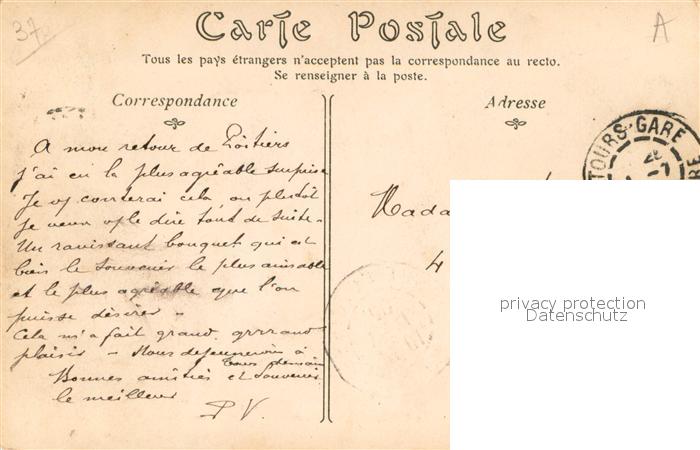 37
A
Carte Postale
Tous les pays étrangers n'acceptent pas la correspondance au recto.
Se renseigner à la poste.
Correspondance
Adresse
TOURS-GARE
A mon retour de Poitiers
j'ai eu la plus agréable surprise
Je vs conterai cela, ou plutôt
je veux vs le dire tout de suite.
Un ravissant bouquet qui est
bien le souvenir le plus aimable
et le plus agréable que l'on
puisse désirer.
Cela m'a fait grand, grrrand
plaisir. Nous déjeunerons à
Tours demain
Bonnes amitiés et souvenir
le meilleur
P V.
Mada
4
privacy protection
Datenschutz